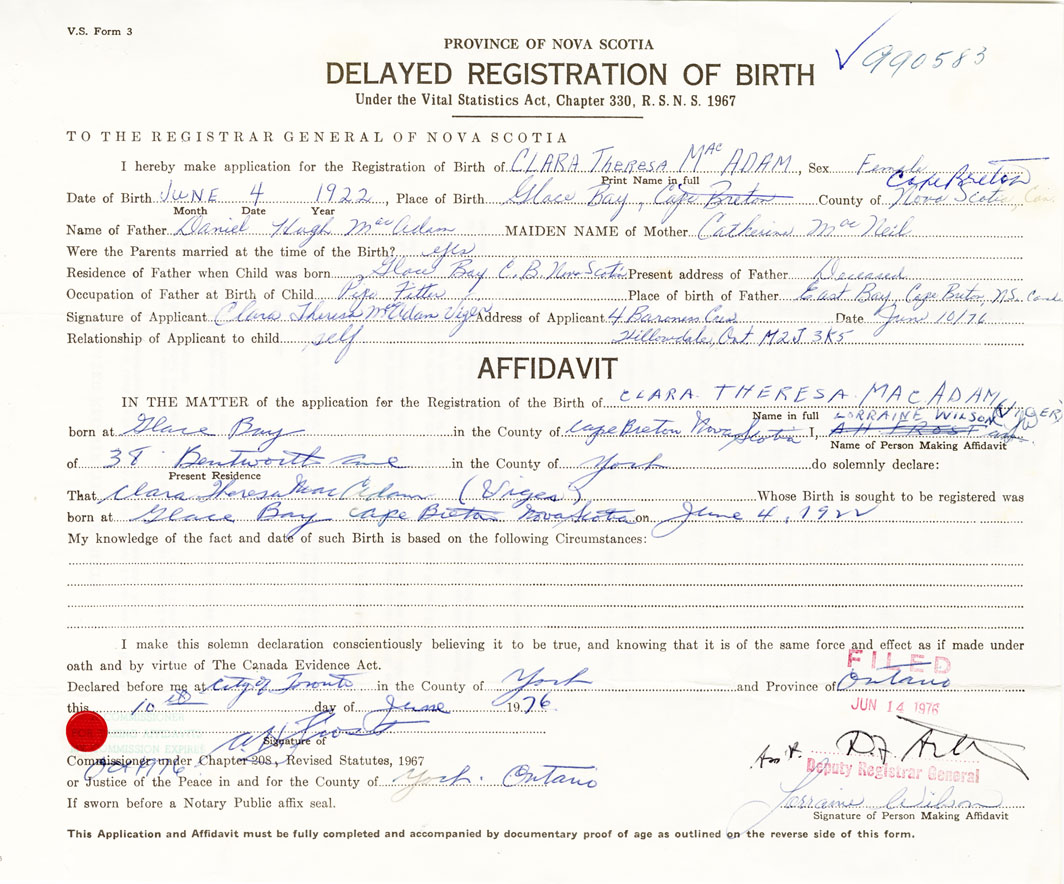 V.S. Form 3
PROVINCE OF NOVA SCOTIA
990583
DELAYED REGISTRATION OF BIRTH
Under the Vital Statistics Act, Chapter 330, R.S.N.S. 1967
TO THE REGISTRAR GENERAL OF NOVA SCOTIA
I hereby make application for the Registration of Birth of CLARA Theresa Mac ADAM, Sex Female
Print Name in full
Cape Breton
Date of Birth JUNE 4 1922, Place of Birth Glace Bay, Cape Breton County of Nova Scotia, Can.
Month Date Year
Name of Father Daniel Hugh MacAdam MAIDEN NAME of Mother Catherine MacNeil
Were the Parents married at the time of the Birth? yes
Residence of Father when Child was born Glace Bay C.B. Nova Scotia Present address of Father Deceased
Occupation of Father at Birth of Child Pipe Fitter Place of birth of Father East Bay, Cape Breton, N.S. Can
Signature of Applicant Clara Theresa McAdam Viger Address of Applicant 4 Baroness Cres Date June 10/76
Relationship of Applicant to child self Willowdale, Ont M2J 3K5
AFFIDAVIT
IN THE MATTER of the application for the Registration of the Birth of CLARA THERESA MAC ADAM (VIGER)
Name in full LORRAINE WILSON LW
born at Glace Bay in the County of Cape Breton Nova Scotia I, AH FROST
Name of Person Making Affidavit
of 38 Bentworth ave in the County of York do solemnly declare:
Present Residence
That Clara Theresa Mac Adam (Viger) Whose Birth is sought to be registered was
born at Glace Bay Cape Breton Nova Scotia on June 4, 1922
My knowledge of the fact and date of such Birth is based on the following Circumstances:
I make this solemn declaration conscientiously believing it to be true, and knowing that it is of the same force and effect as if made under
oath and by virtue of The Canada Evidence Act.
FILED
Declared before me at City of Toronto in the County of York and Province of Ontario
this 10th day of June 1976
JUN 14 1976
COMMISSIONER
COMMISSION EXPIRES
Signature of
Commissioner under Chapter 208, Revised Statutes, 1967
Oct 19/76
Deputy Registrar General
or Justice of the Peace in and for the County of York Ontario
Lorraine Wilson
If sworn before a Notary Public affix seal.
Signature of Person Making Affidavit
This Application and Affidavit must be fully completed and accompanied by documentary proof of age as outlined on the reverse side of this form.